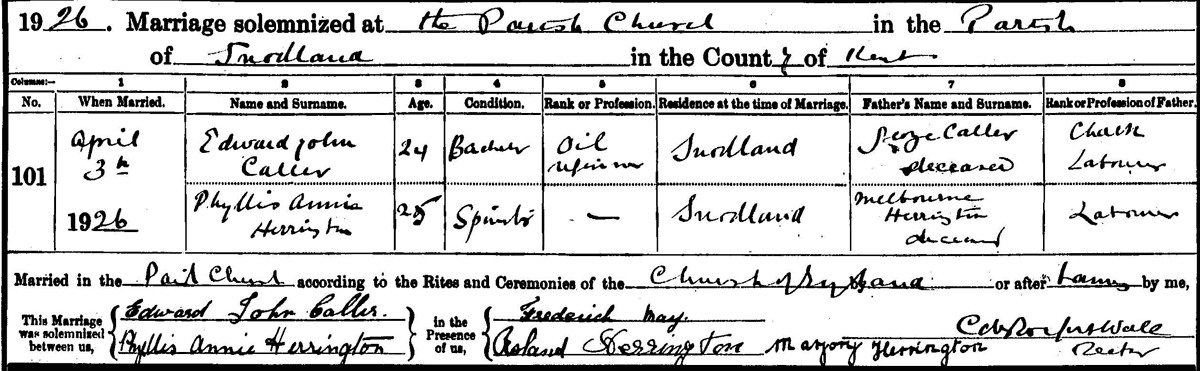 1926. Marriage solemnized at the Parish Church in the Parish
of Snodland in the County of Kent
Columns:— 1 2 3 4 5 6 7 8
No. When Married. Name and Surname. Age. Condition. Rank or Profession. Residence at the time of Marriage. Father's Name and Surname. Rank or Profession of Father.
101
April
3rd
1926
Edward John
Caller
24
Bachelor
Oil
refiner
Snodland
George Caller
deceased
Chalk
Labourer
Phyllis Annie
Herrington
25
Spinster
—
Snodland
Melbourne
Herrington
deceased
Labourer
Married in the Parish Church according to the Rites and Ceremonies of the Church of England or after banns by me,
This Marriage was solemnized between us,
Edward John Caller.
Phyllis Annie Herrington
in the Presence of us,
Frederick May.
Roland Herrington Marjory Herrington
Rector